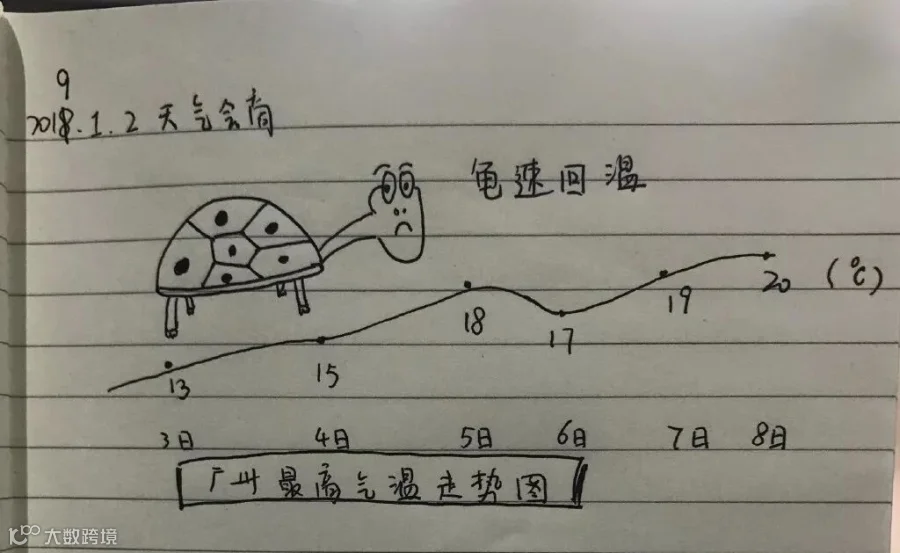 9
2018.1.2 天气会商
龟速回温
13 15 18 17 19 20 (℃)
3日 4日 5日 6日 7日 8日
广州最高气温走势图
大数跨境